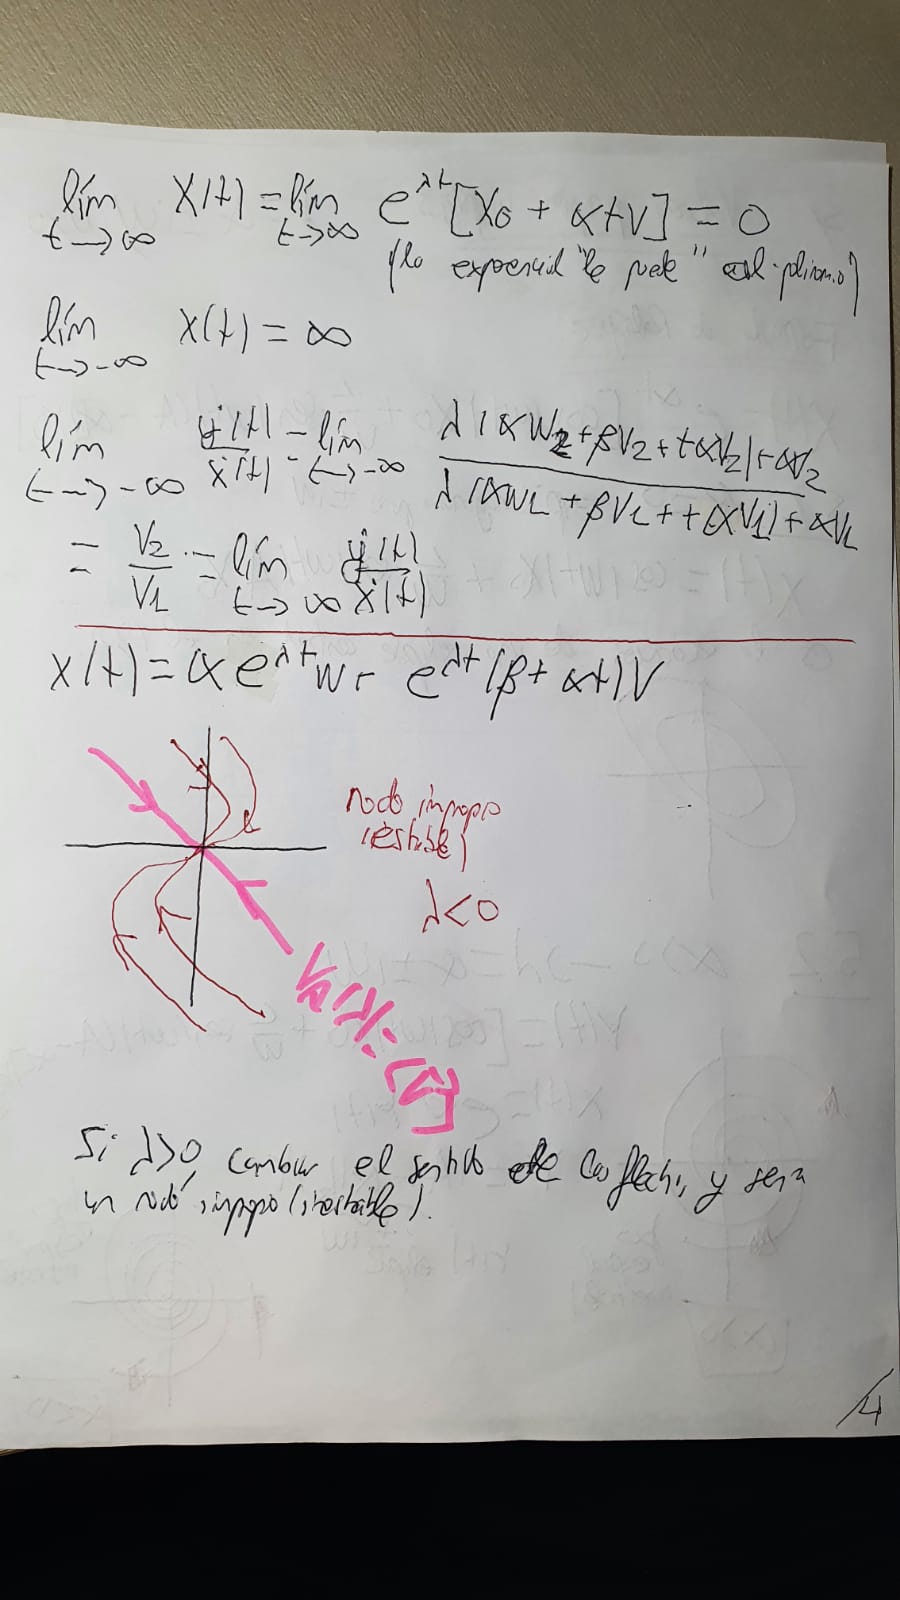 lím X(t) = lím e^{λt} [X₀ + αtV] = 0
t→∞ t→∞
(la exponencial "le puede" al polinomio)
lím x(t) = ∞
t→-∞
lím ẏ(t)/ẋ(t) = lím λ(αW₂ + βV₂ + tαV₂) + αV₂ / λ(αW₁ + βV₁ + tαV₁) + αV₁
t→-∞ t→-∞
= V₂/V₁ = lím ẏ(t)/ẋ(t)
t→∞
x(t) = α e^{λt} W + e^{λt} (β + αt) V
nodo impropio
(estable)
λ<0
Si λ>0, cambiar el sentido de las flechas, y será
un nodo impropio (inestable).
4